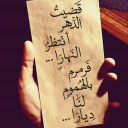 قضيتُ
الدهر
أنتظرُ
النهارا...
فرمرم
بالهموم
لنا
ديارا...